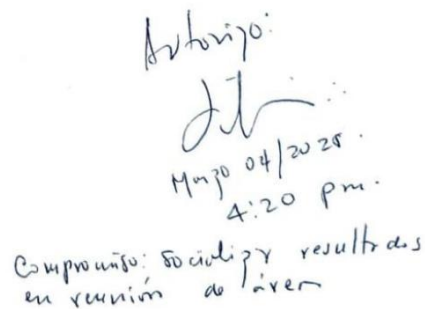 Autorizo:
Marzo 04/2025.
4:20 pm.
Compromiso: Socializar resultados
en reunión de área